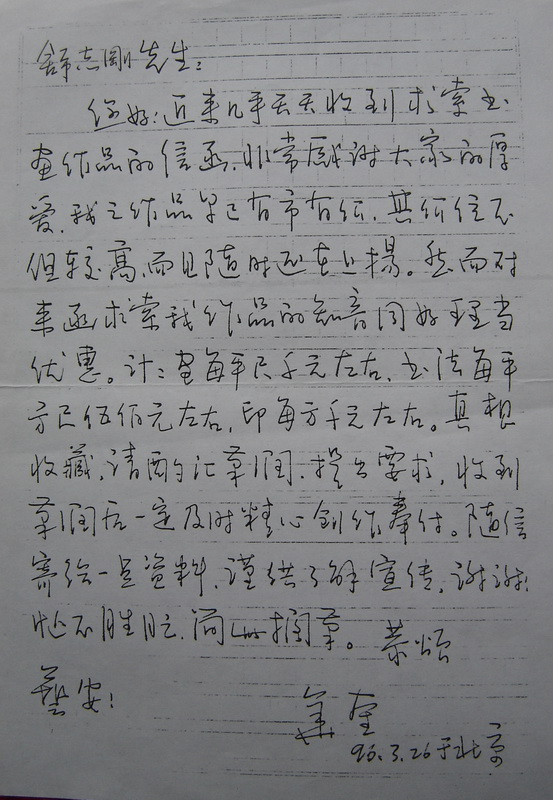 舒志刚先生：
你好！近来几乎天天收到求索书
画作品的信函，非常感谢大家的厚
爱，我之作品早已有市有价，其价位不
但较高，而且随时还在上扬。然而对
来函求索我作品的知音同好理当
优惠。计：画每平尺千元左右，书法每平
方尺伍佰元左右，印每方千元左右。真想
收藏，请酌汇草润，提出要求，收到
草润后一定及时精心创作奉付。随信
寄给一点资料，谨供了解宣传，谢谢！
忙不胜忙，简此搁草。恭颂
艺安！
96.3.26于北京